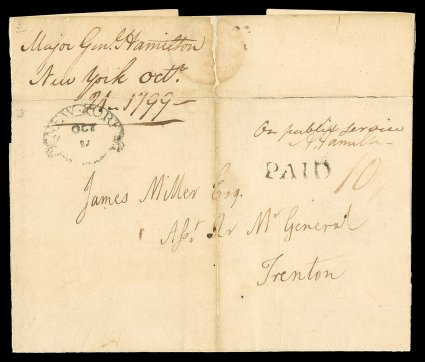 Major Genl. Hamilton
New York octr.
21 – 1799 –
NEW-YORK
OCT
21
On public service
A Hamilton
PAID 10
James Miller Esq.
Asst. Qr Mr General
Trenton
3